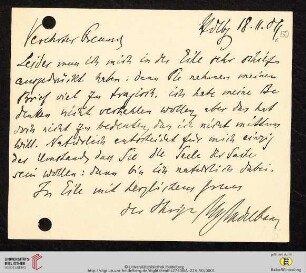 18.11.86
Verehrter Freund
Leider muss ich mich in der Eile sehr
ausgedrückt haben: denn Sie nehmen meinen
Brief viel zu tragisch. Ich habe meine Be
denken nicht verhehlen wollen, aber das hat
doch nicht zu bedeuten, dass ich nicht mitthun
will. Natürlich entscheidet für mich einzig
der Umstand, dass Sie die Seele der Sache
sein wollen: dann bin ich natürlich dabei.
In Eile mit herzlichem Gruss
der Ihrige
UNIVERSITÄTS-
BIBLIOTHEK
HEIDELBERG
© Universitätsbibliothek Heidelberg